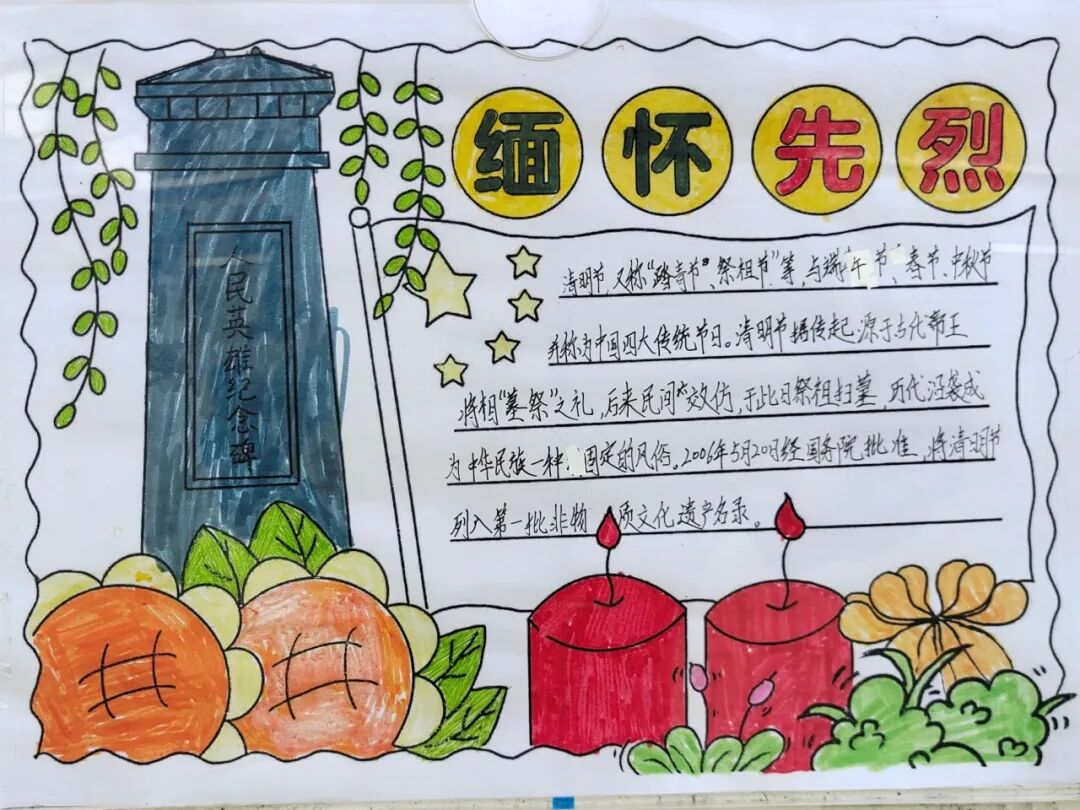 缅怀先烈
人民英雄纪念碑
清明节,又称“踏青节”、祭祖节”等,与端午节、春节、中秋节
并称为中国四大传统节日。清明节据传起源于古代帝王
将相“墓祭”之礼,后来民间效仿,于此日祭祖扫墓,历代沿袭成
为中华民族一种固定的风俗。2006年5月20日经国务院批准,将清明节
列入第一批非物质文化遗产名录。